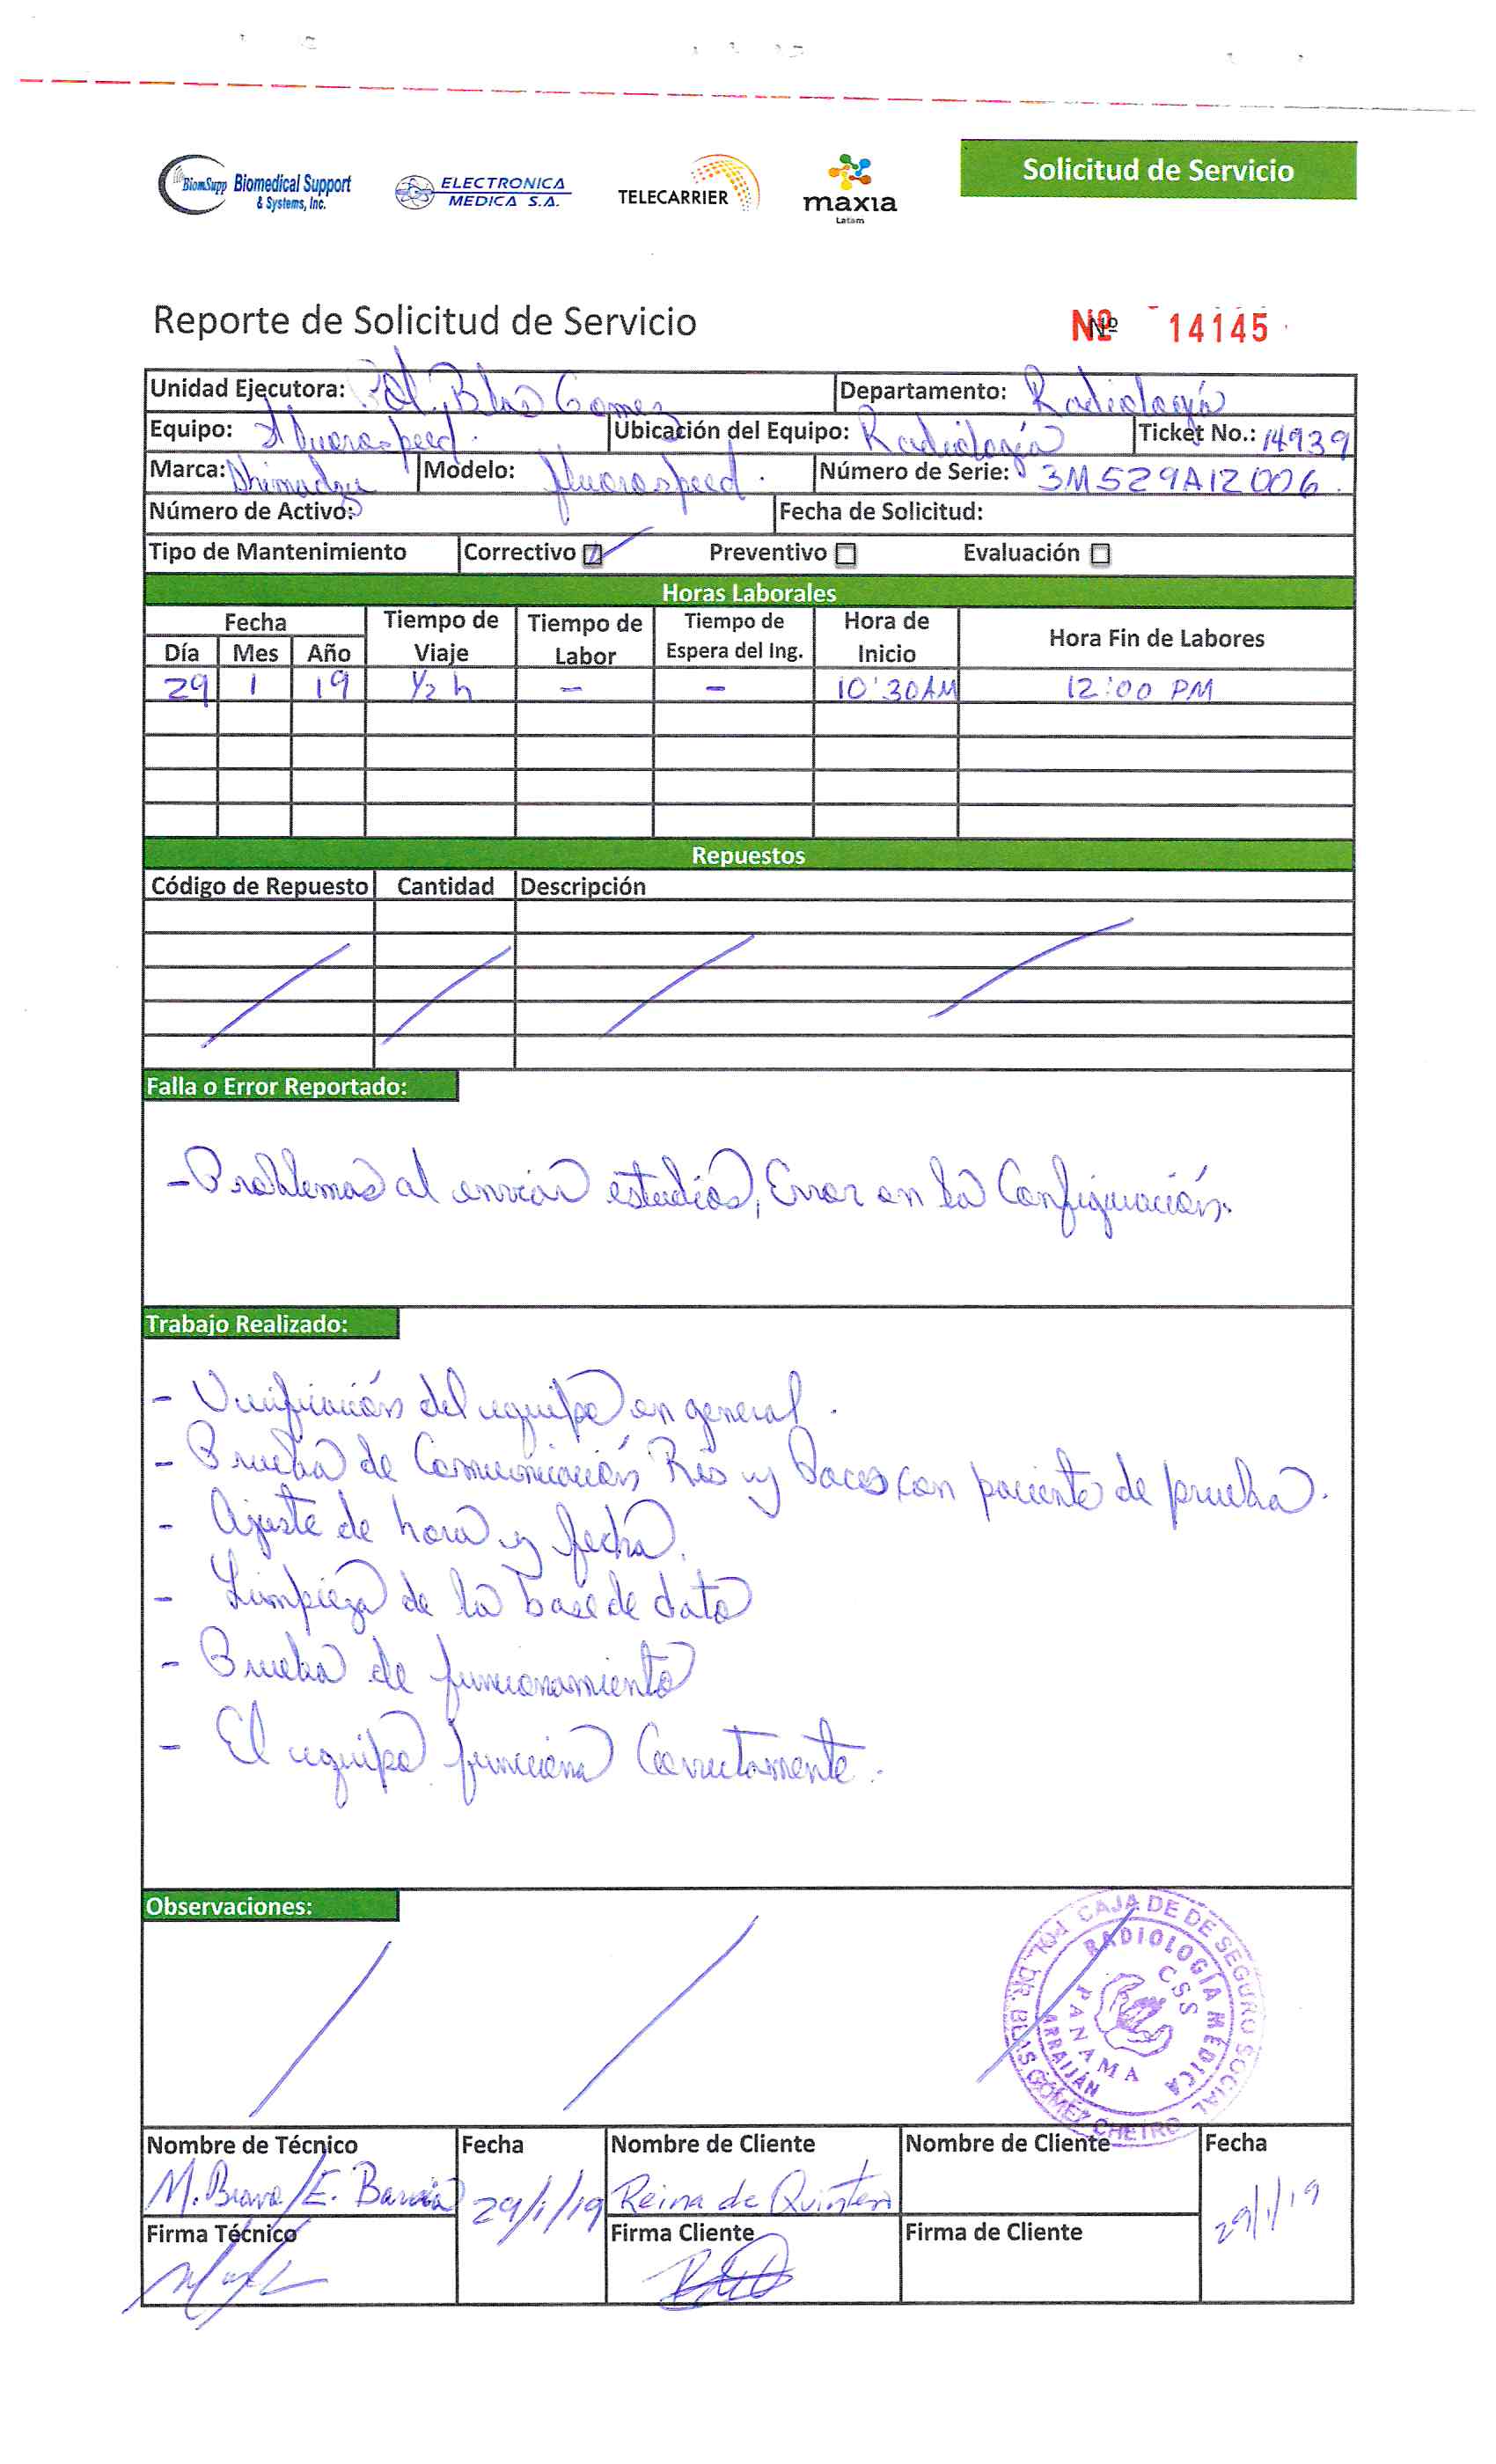 BiomSupp Biomedical Support & Systems, Inc.
ELECTRONICA MEDICA S.A.
TELECARRIER
maxia Latam
Solicitud de Servicio
Reporte de Solicitud de Servicio Nº Nº 14145
Unidad Ejecutora: Pol. Blas Gomez Departamento: Radiología
Equipo: Fluorospeed. Ubicación del Equipo: Radiología Ticket No.: 14939
Marca: Shimadzu Modelo: fluorospeed. Número de Serie: 3M529A12006.
Número de Activo: Fecha de Solicitud:
Tipo de Mantenimiento Correctivo Preventivo Evaluación
Horas Laborales
Fecha Tiempo de Viaje Tiempo de Labor Tiempo de Espera del Ing. Hora de Inicio Hora Fin de Labores
Día Mes Año
29 1 19 1/2 h - - 10:30AM 12:00 PM
Repuestos
Código de Repuesto Cantidad Descripción
Falla o Error Reportado:
- Problemas al enviar estudios, Error en la Configuración.
Trabajo Realizado:
- Verificación del equipo en general.
- Prueba de Comunicación Ris y Pacs con paciente de prueba.
- Ajuste de hora y fecha.
- Limpieza de la base de dato
- Prueba de funcionamiento
- El equipo funciona Correctamente.
Observaciones:
CAJA DE DE SEGURO SOCIAL
POL. DR. BLAS GÓMEZ CHETRO
RADIOLOGÍA MÉDICA
CSS
PANAMA
ARRAIJÁN
Nombre de Técnico Fecha Nombre de Cliente Nombre de Cliente Fecha
M. Bravo / E. 29/1/19 Reina de Quintero 29/1/19
Firma Técnico Firma Cliente Firma de Cliente